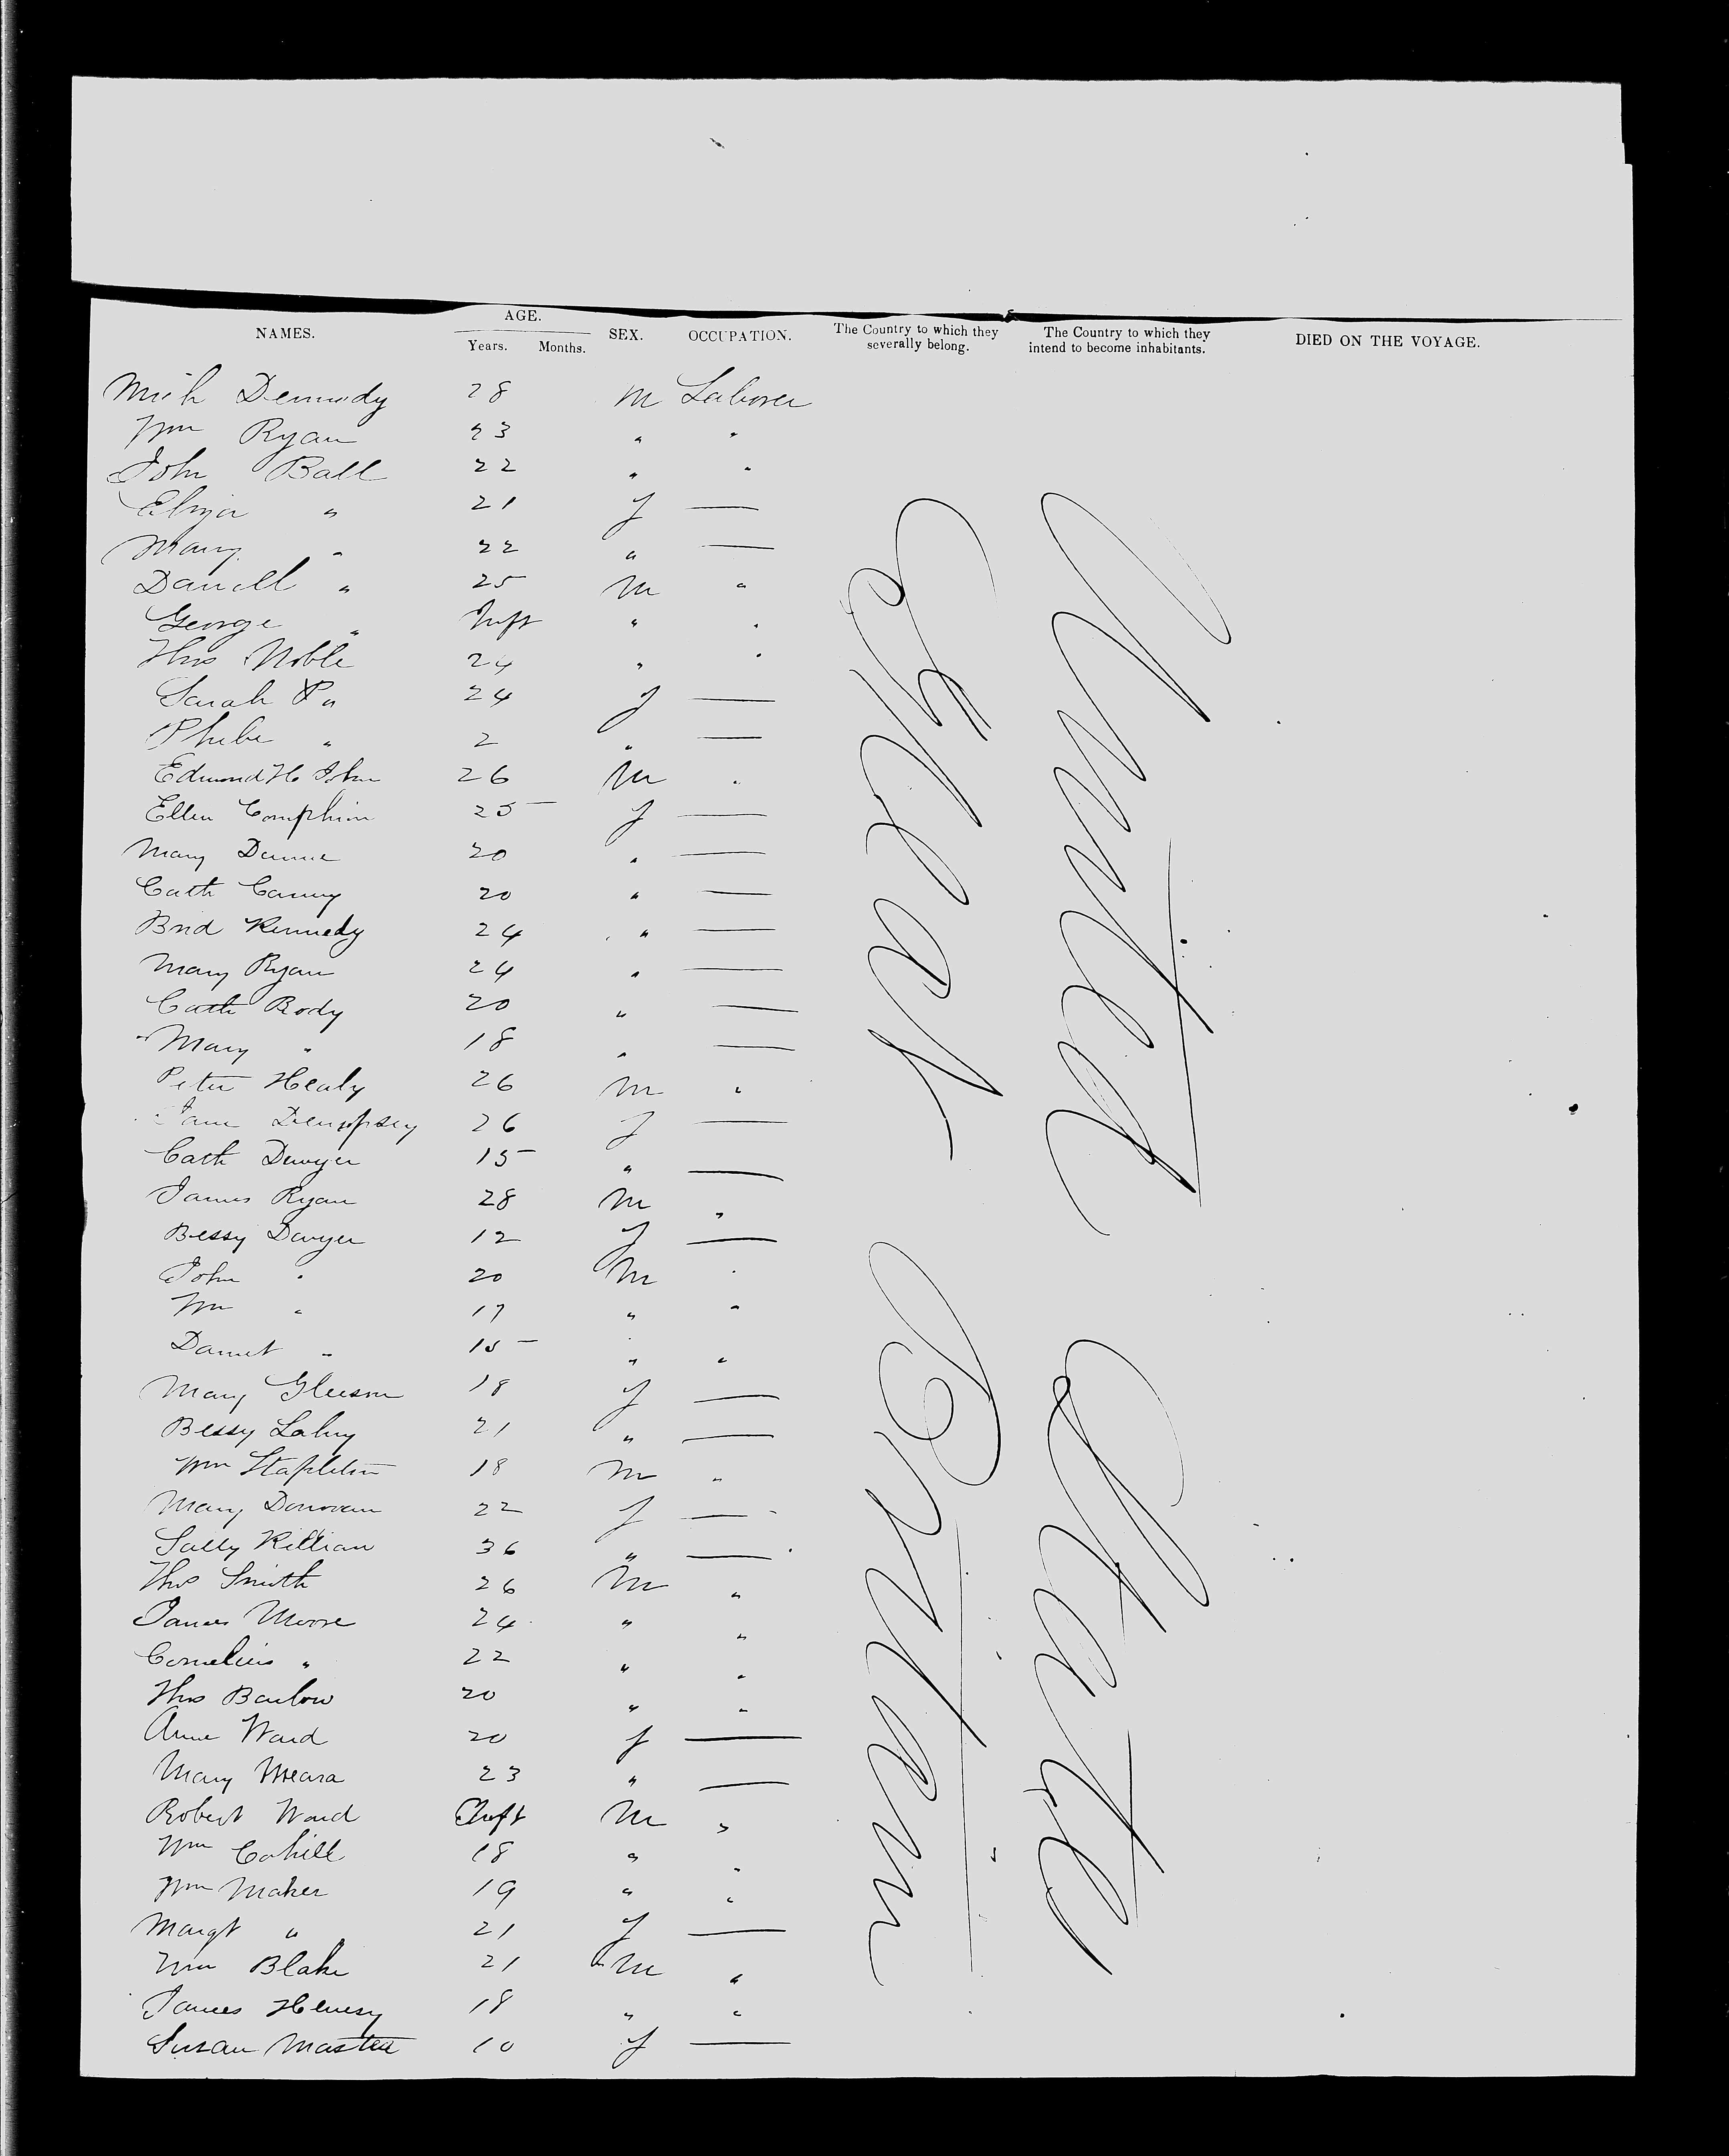 NAMES. AGE. Years. Months. SEX. OCCUPATION. The Country to which they severally belong. The Country to which they intend to become inhabitants. DIED ON THE VOYAGE.
Mich 28 m Laborer
Wm Ryan 23 " "
John Ball 22 " "
Eliza " 21 f —
Mary " 22 " —
Daniell " 25 m "
George " Inft " "
Thos Noble 24 " "
Sarah P " 24 f —
Phebe " 2 " —
Edmond H John 26 m "
Ellen 25 f —
Mary 20 " —
Cath Canny 20 " —
Brid Kennedy 24 " —
Mary Ryan 24 " —
Cath Rody 20 " —
Mary " 18 " —
Peter Healy 26 m "
Jane Dempsey 26 f —
Cath Dwyer 15 " —
James Ryan 28 m "
Bessy Dwyer 12 f —
John " 20 m "
Wm " 17 " "
Daniel " 15 " "
Mary Gleeson 18 f —
Bessy Lahy 21 " —
Wm Stapleton 18 m "
Mary Donovan 22 f —
Sally Killian 36 " —
Thos Smith 26 m "
James Moore 24 " "
Cornelius " 22 " "
Thos Barlow 20 " "
Anne Ward 20 f —
Mary Meara 23 " —
Robert Ward Inft m "
Wm Cahill 18 " "
Wm Maher 19 " "
Margt " 21 f —
Wm Blake 21 m "
James Henesy 18 " "
Susan Master 10 f —
Great Britain
United States